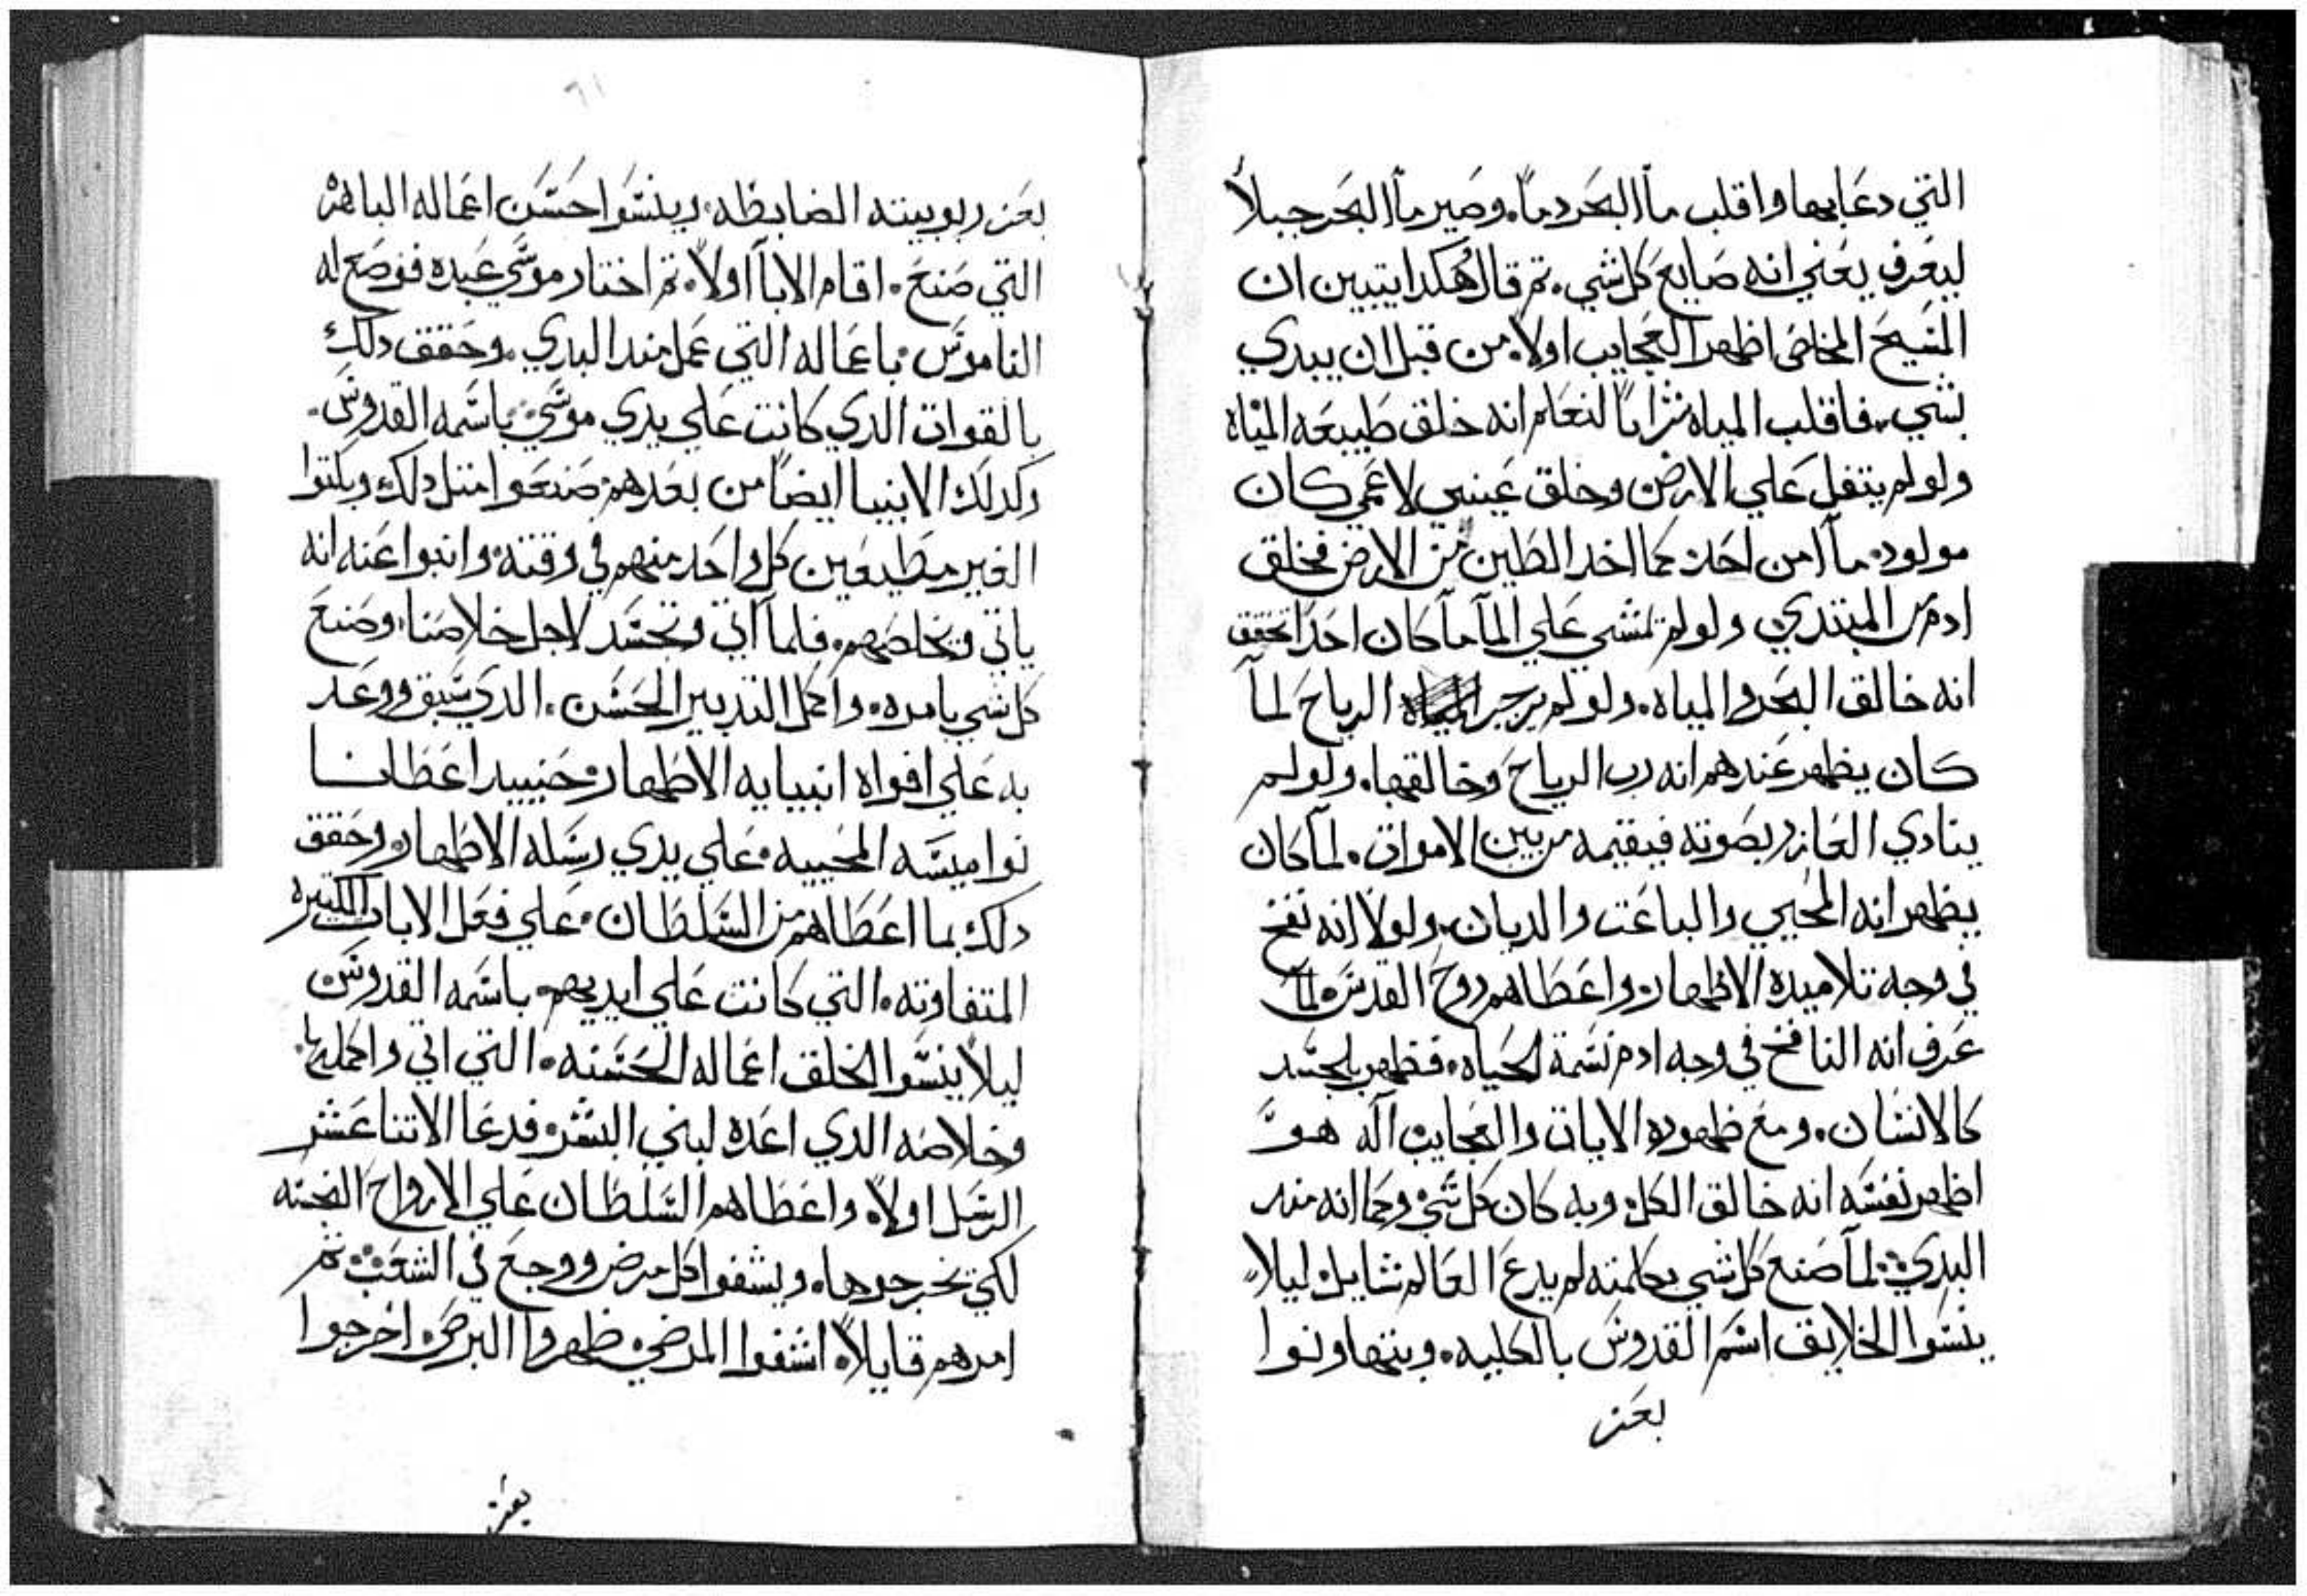 التي دعا بها واقلب ماا البحر دماً. وصير ماا البحر جبلاً
ليعرف يعني انه صايع كل شي. تم قال هكدا يتبين ان
المسيح المخلص اظهر العجايب اولاً. من قبل ان يبدي
بشي. فاقلب المياه شراباً لنعلم انه خلق طبيعه المياه
ولو لم يتفل علي الارض وخلق عينين لاعمي كان
مولود. ماا امن احد. كما اخد الطين من الارض فخلق
ادم من المبتدي. ولو لم تمشي علي المآ مآ كان احداً تحقق
انه خالق البحر والمياه. ولو لم يزجر الرياح لمآ
كان يظهر عندهم انه رب الرياح وخالقها. ولو لم
ينادي العازر بصوته فيقيمه من بين الاموات. لمآ كان
يظهر انه المحيي والباعت والديان. ولولا انه نفخ
في وجه تلاميده الاطهار. واعطاهم روح القدس. لمآ
عرف انه النافخ في وجه ادم نسمة الحياه. فظهر بالجسد
كالانسان. ومع ظهوره الايات والعجايب آله هو
اظهر نفسه انه خالق الكل. وبه كان كل شي. وكما انه مند
البدي. لمآ صنع كل شي بكلمته لم يدع العالم شايل. ليلاً
ينسوا الخلايق اسم القدوس بالكليه. ويتهاونوا
بعز
٦١
بعز ربوبيته الضابطه. وينسوا حسن اعماله الباهره
التي صنع. اقام الابآا اولاً. تم اختار موسي عبده فوضع له
الناموس. باعماله التي عمل مند البدي. وحقق دلك
بالقوات الدي كانت علي يدي موسي. باسمه القدوس.
وكدلك الانبيا ايضاً من بعدهم صنعوا متل دلك وبكتوا
الغير مطيعين كل واحد منهم في وقته. وانبوا عنه انه
ياتي ويخلصهم. فلمآ اتي وتجسد لاجل خلاصنا. وصنع
كل شي بامره. واكمل التدبير الحسن. الدي سبق ووعد
به علي افواه انبيايه الاطهار. حنييد اعطانا
نواميسه المحييه. علي يدي رسله الاطهار. وحقق
دلك بما اعطاهم من السلطان. علي فعل الايات الكتيره
المتفاوته. التي كانت علي ايديهم. باسمه القدوس
ليلاً ينسوا الخلق اعماله الحسنه. التي اتي واكملها.
وخلاصه الدي اعده لبني البشر. فدعا الاتنا عشر
الرسل اولاً. واعطاهم السلطان علي الارواح النجسه
لكي يخرجوها. ويشفوا كل مرض ووجع في الشعب. تم
امرهم قايلاً. اشفوا المرضي. ظهروا البرص. اخرجوا